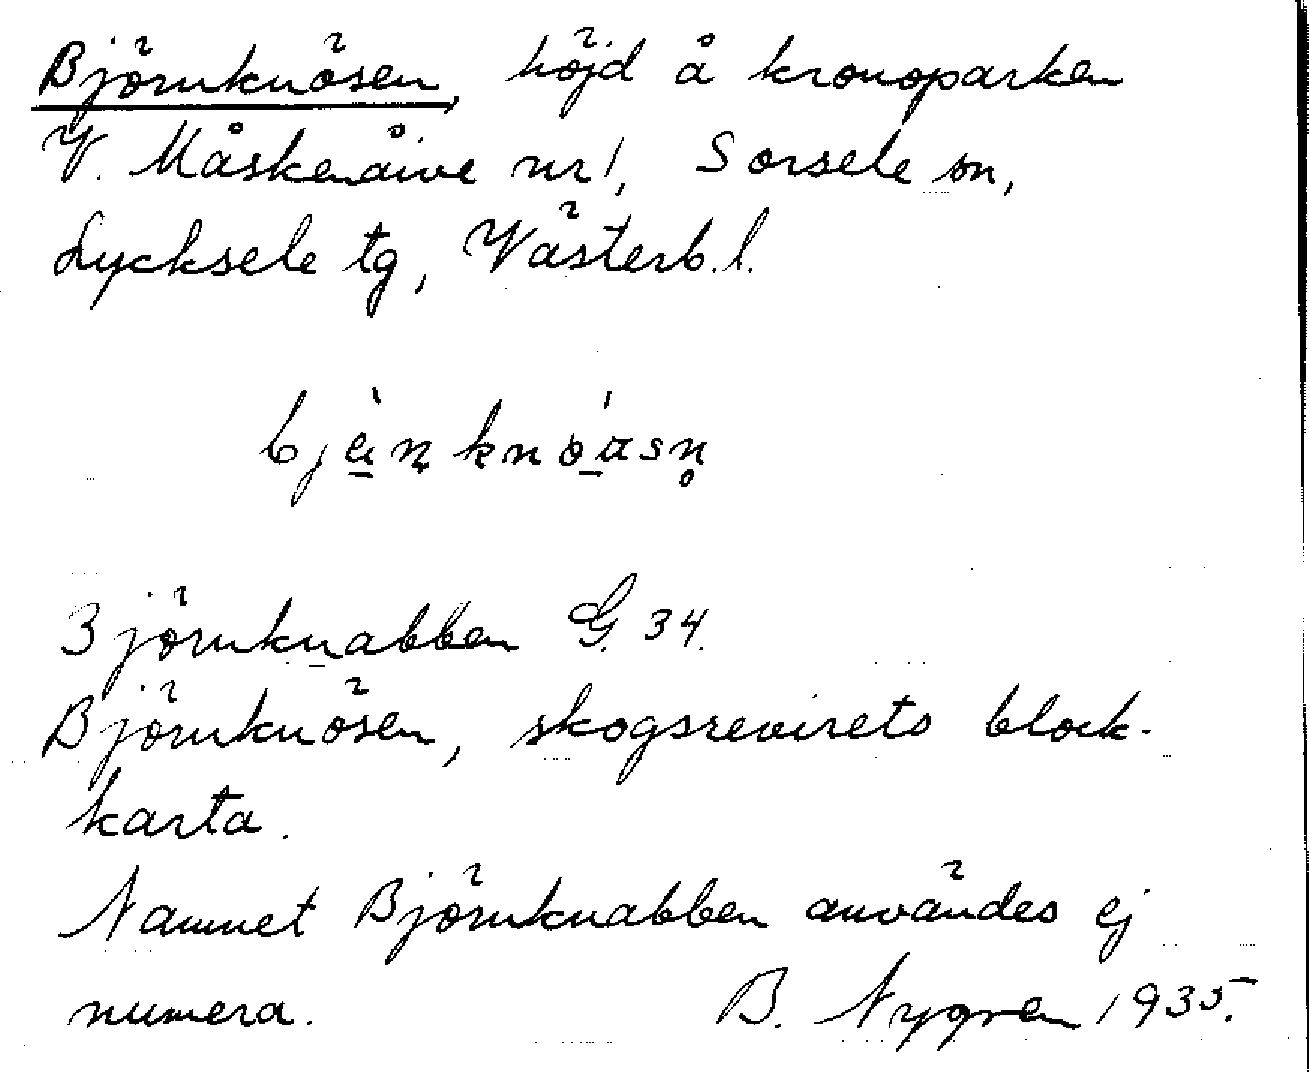 Björnknösen, höjd å kronoparken
V. Måskenåive nr 1, Sorsele sn,
Lycksele tg, Västerb. l.
Björnknabben G. 34.
Björnknösen, skogsrevirets block-
karta.
Namnet Björnknabben användes ej
numera. B. Nygren 1935.